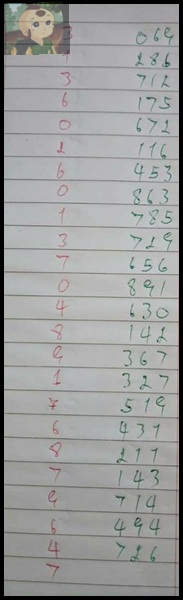 3 069
1 286
3 712
6 175
0 672
2 116
6 453
0 863
1 785
3 729
7 656
0 891
4 630
8 142
9 367
1 327
7 519
6 431
8 211
7 143
9 714
6 494
4 726
7